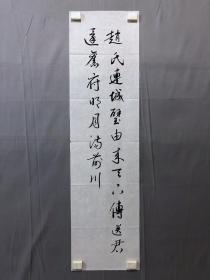 趙氏連城璧由来天下傳送君
還舊府明月滿前川